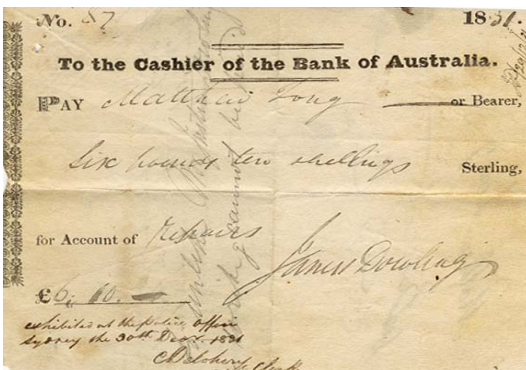 No. 57 1831.
To the Cashier of the Bank of Australia.
PAY Matthew Long or Bearer,
Six pounds ten shillings Sterling,
for Account of repairs
James Dowling
£6, 10. —
exhibited at the Police Office
Sydney the 30th Decr. 1831
Clerk